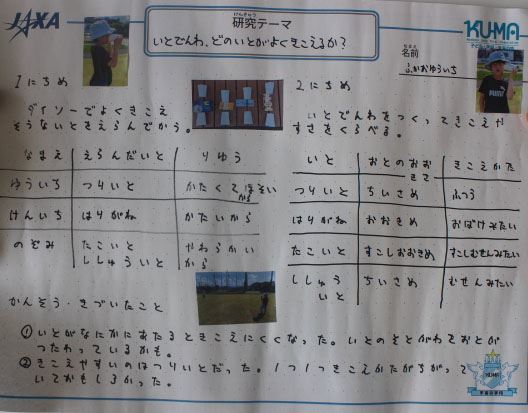 JAXA
けんきゅう
研究テーマ
いとでんわ、どのいとがよくきこえるか?
KUMA
名前
ふかおゆういち
1にちめ
ダイソーでよくきこえ
そうないとをえらんでかう。
なまえ えらんだいと りゆう
ゆういち つりいと かたくてほそいから
けんいち はりがね かたいから
のぞみ たこいと ししゅういと やわらかいから
2にちめ
いとでんわをつくってきこえや
すさをくらべる。
いと おとのおおきさ きこえかた
つりいと ちいさめ ふつう
はりがね おおきめ おばけみたい
たこいと すこしおおきめ すこしむせんみたい
ししゅういと ちいさめ むせんみたい
かんそう・きづいたこと
① いとがなにかにあたるときこえにくくなった。いとのそとがわでおとが
つたわっているかも。
② きこえやすいのはつりいとだった。1つ1つきこえかたがちがって
いておもしろかった。
KUMA
宇宙自学校